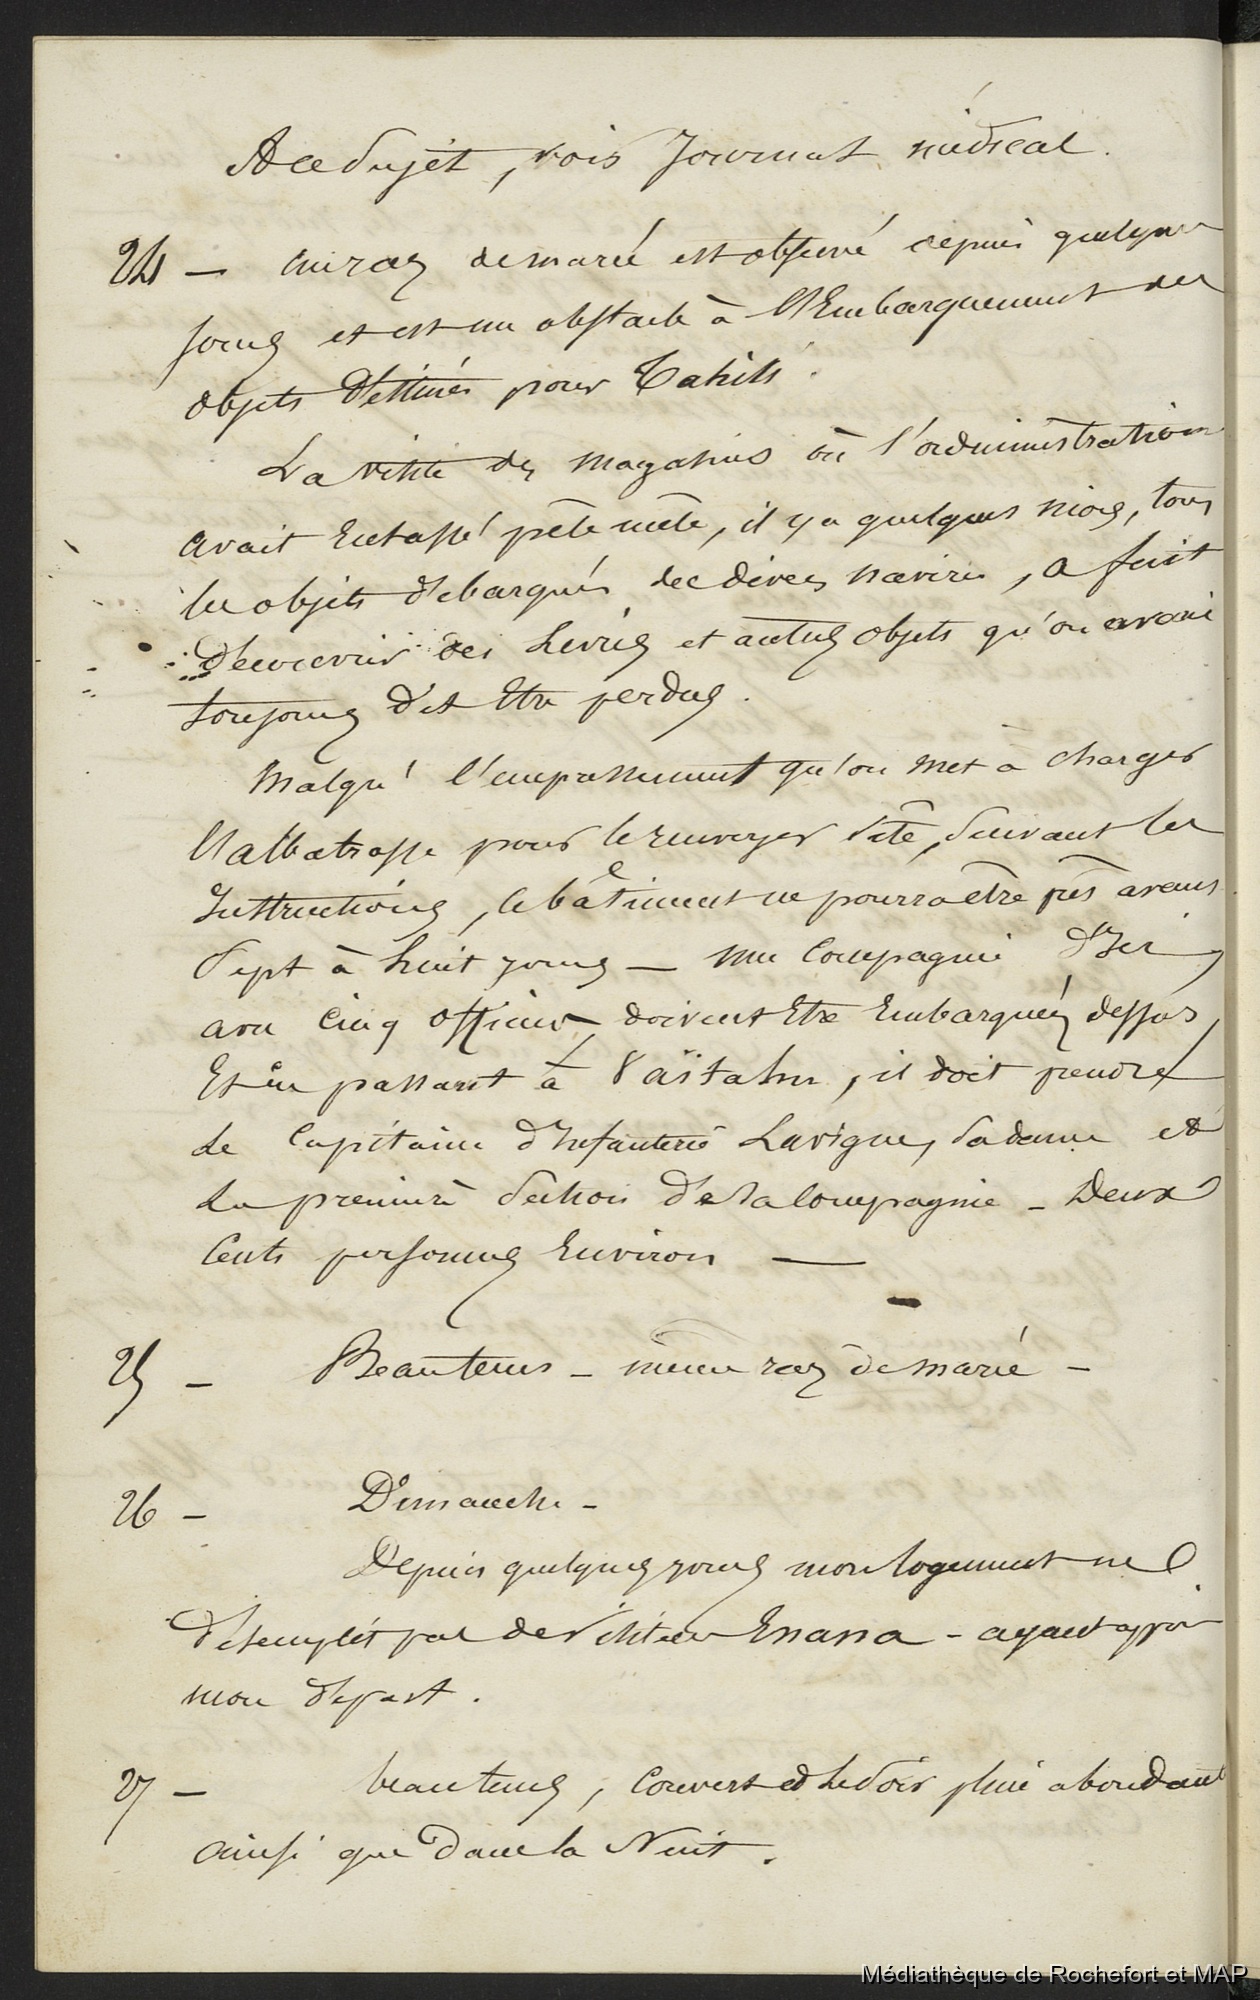 A ce sujet, vois Journal médical.
24 — un raz de marée est observé depuis quelques
jours et est un obstacle à l'Embarquement des
objets destinés pour Tahiti.
La visite des magasins où l'administration
avait Entassé pêle mêle, il y a quelques mois, tous
les objets débarqués des divers navires, a fait
découvrir des livres et autres objets qu'on avait
toujours dit Etre perdus.
Malgré l'empressement qu'on met à charger
l'albatrosse pour le renvoyer vite, suivant les
Instructions, le bâtiment ne pourra être prêt avant
sept à huit jours — une Compagnie d'Ici,
avec Cinq officiers, doivent Etre Embarqués dessus,
Et en passant à Vaïtahu, il doit prendre
le Capitaine d'Infanterie Lavigne, sa dame et
la première section de la Compagnie _ Deux
Cents personnes Environ —
25 — Beau tems _ même raz de marée —
26 — Dimanche —
Depuis quelques jours mon logement ne
désemplit pas de visiteurs Enana - ayant appris
mon départ.
27 — beau tems, Couvert et le soir pluie abondante
ainsi que dans la Nuit.
Médiathèque de Rochefort et MAP